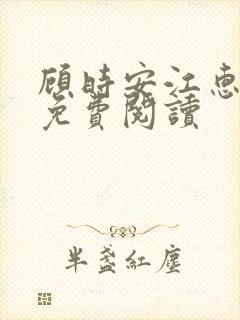 顧時安江惠
免費閱讀
半盞紅塵